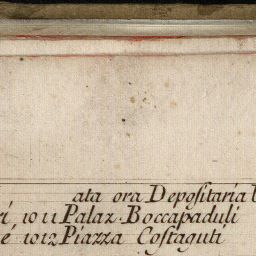 ata ora Depositaria
ri 1011 Palaz. Boccapaduli
é 1012 Piazza Costaguti